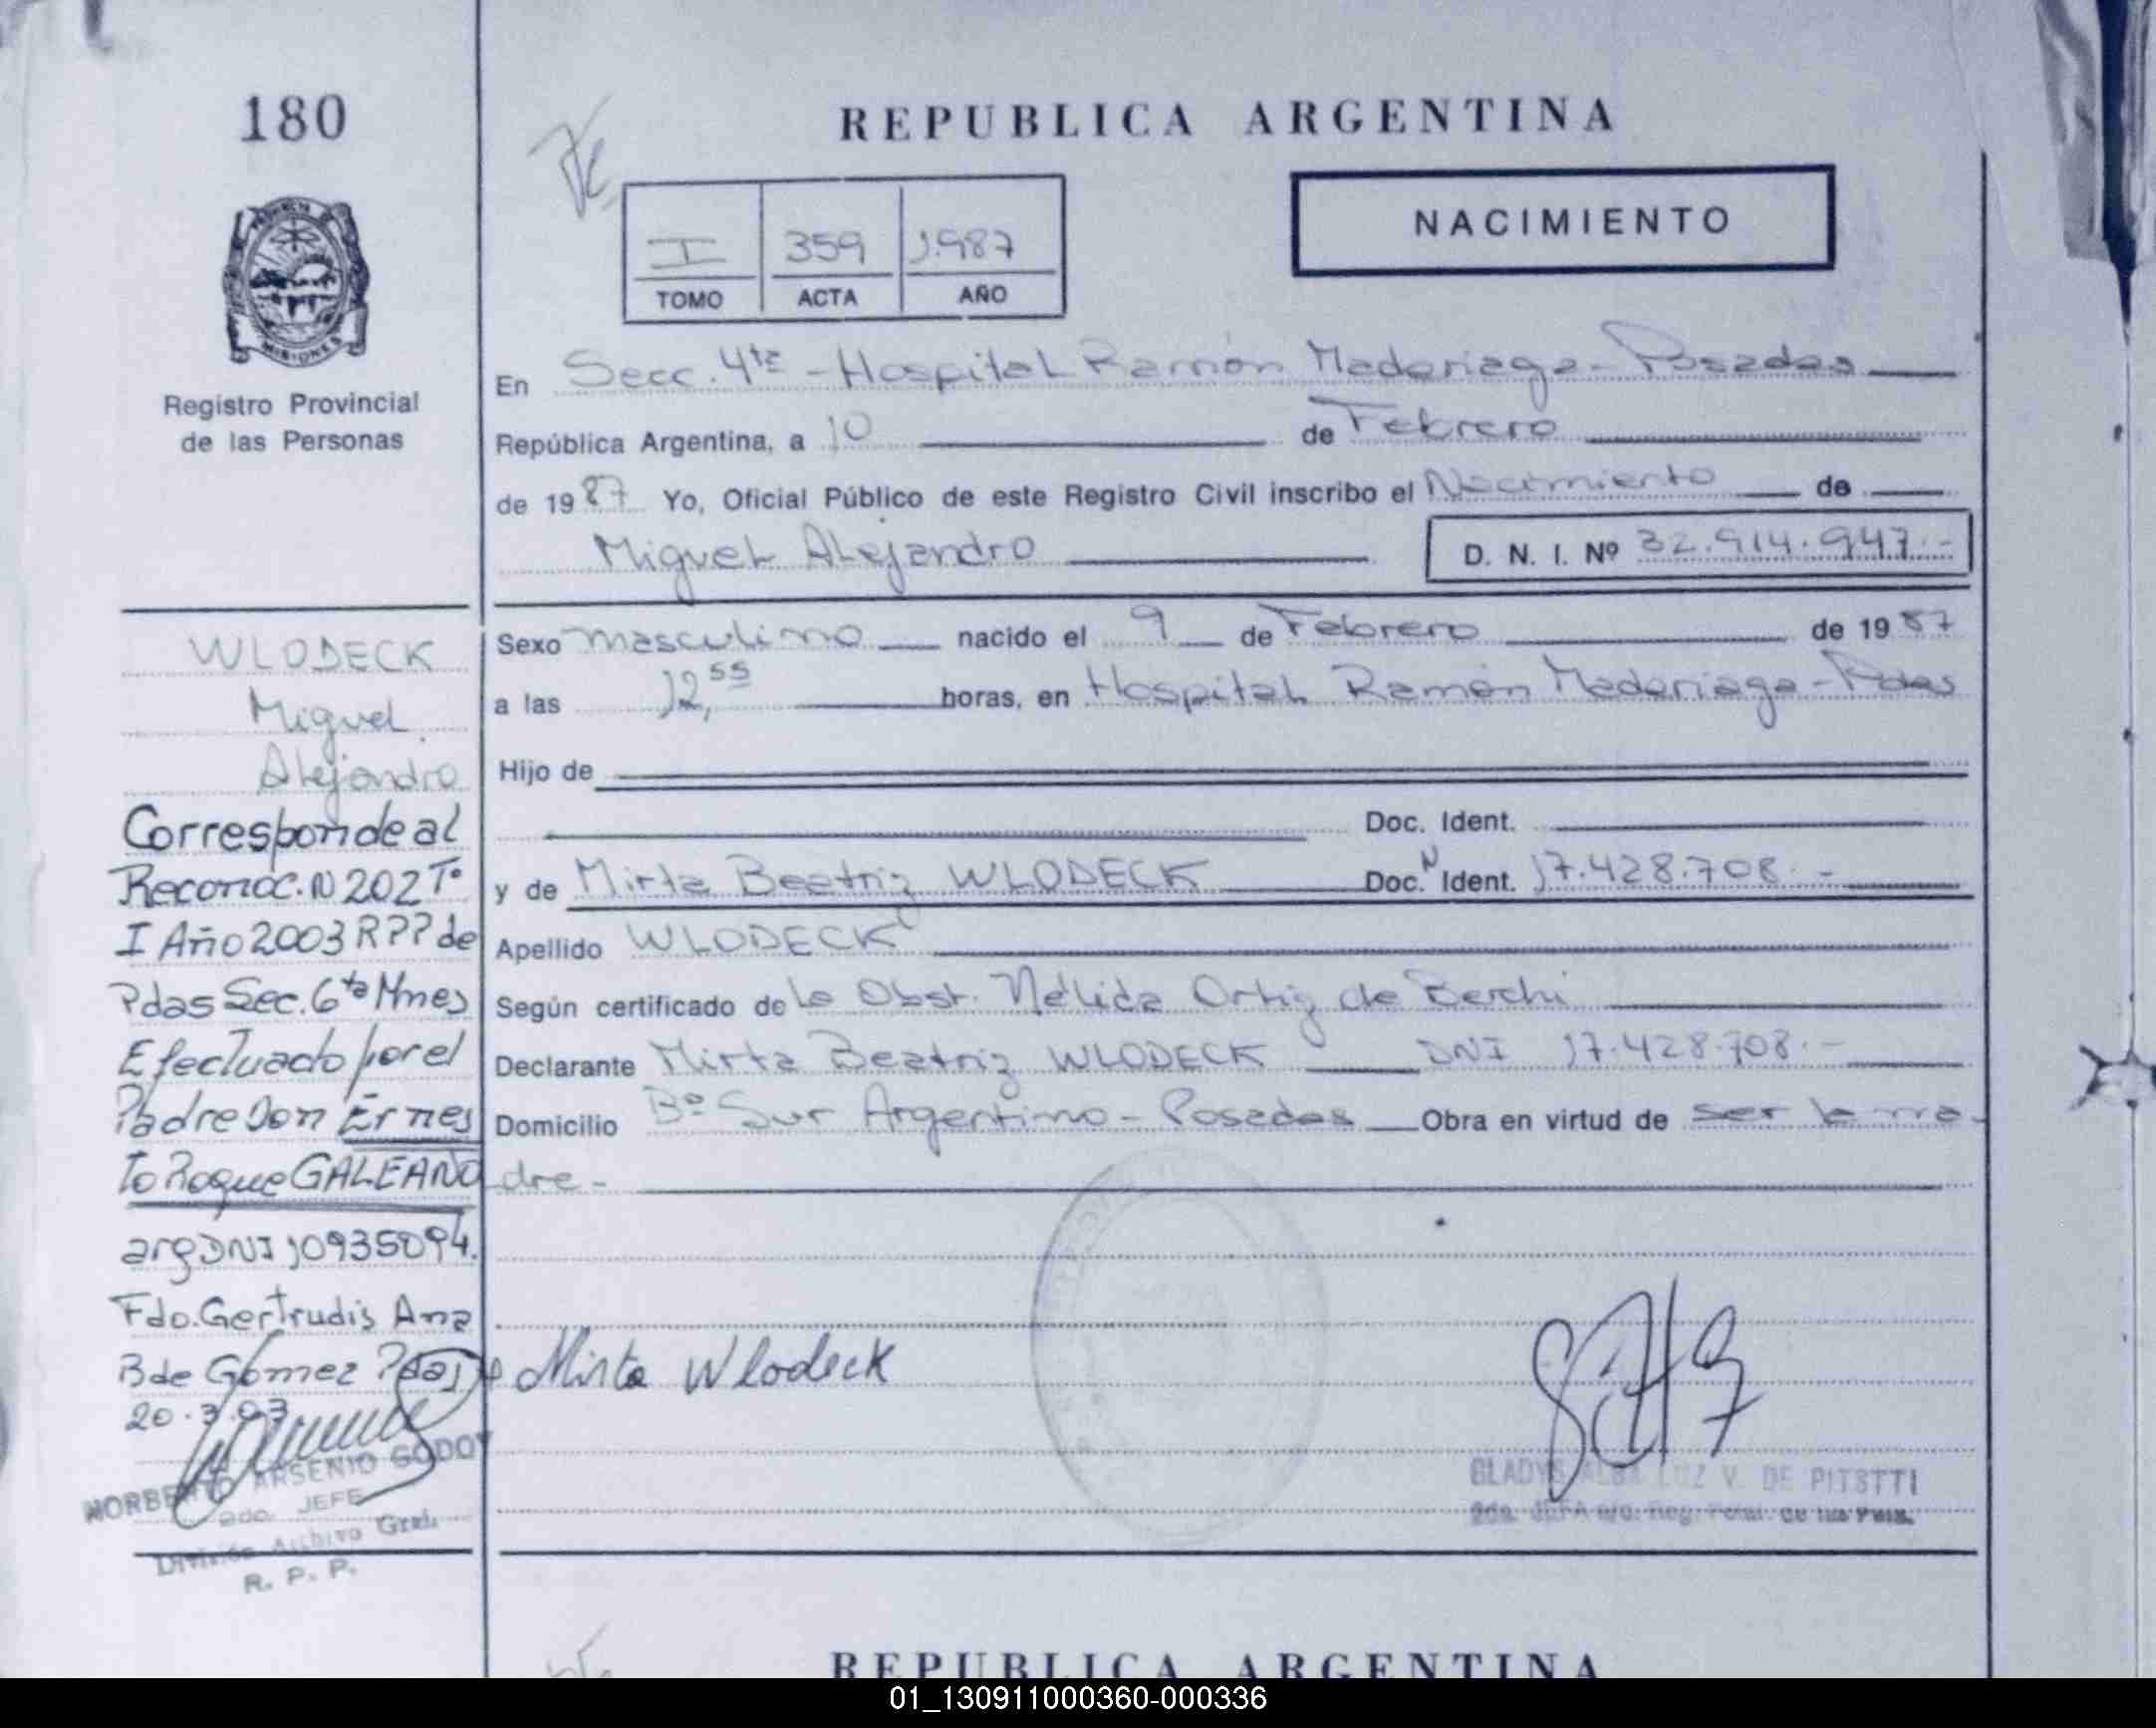 180
REPUBLICA ARGENTINA
NACIMIENTO
I 359 1.987
TOMO ACTA AÑO
MISIONES
Registro Provincial
de las Personas
En Secc. 4ta - Hospital Ramón Madariaga - Posadas
República Argentina, a 10 de Febrero
de 1987 Yo, Oficial Público de este Registro Civil inscribo el Nacimiento de
Miguel Alejandro D. N. I. Nº 32.914.947.-
Sexo masculino nacido el 9 de Febrero de 1987
a las 12,55 horas, en Hospital Ramón Madariaga - Pdas
Hijo de
Doc. Ident.
y de Mirta Beatriz WLODECK Doc. N Ident. 17.428.708.-
Apellido WLODECK
Según certificado de la Obst. Nélida Ortiz de Berchi
Declarante Mirta Beatriz WLODECK DNI 17.428.708.-
Domicilio Bº Sur Argentino - Posadas Obra en virtud de ser la ma-
dre-
WLODECK
Miguel
Alejandro
Corresponde al
Reconoc. N 202 Tº
I Año 2003 RPP de
Pdas Sec. 6ta Mnes
Efectuado por el
Padre Don Ernes
to Roque GALEANO
arg DNI 10935094.
Fdo. Gertrudis Ana
B de Gómez Pdas
20.3.03
Mirta Wlodeck
NORBERTO ARSENIO GODOY
2do. JEFE
División Archivo Gral.
R. P. P.
GLADYS ALBA LUZ V. DE
REPUBLICA ARGENTINA
01_130911000360-000336